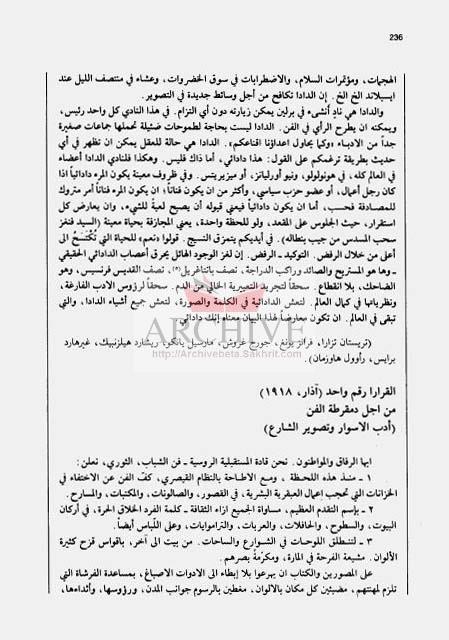 236
الهجمات، ومؤتمرات السلام، والاضطرابات في سوق الخضروات، وعشاء في منتصف الليل عند
ايسبلاند الخ الخ. إن الدادا تكافح من أجل وسائط جديدة في التصوير.
والدادا هي نادٍ أُنشىء في برلين يمكن زيارته دون أي التزام. في هذا النادي كل واحد رئيس،
ويمكنه ان يطرح الرأي في الفن. الدادا ليست بحاجة لطموحات ضئيلة تحملها جماعات صغيرة
جداً من الادباء «وكما يحاول اعداؤنا اقناعكم». الدادا هي حالة للعقل يمكن ان تظهر في أي
حديث بطريقة ترغمكم على القول: هذا دادائي، أما ذاك فليس. وهكذا فلنادي الدادا أعضاء
في العالم كله، في هونولولو، ونيو أورليانز، أو ميزيريتس. وفي ظروف معينة يكون المرء دادائياً اذا
كان رجل أعمال، أو عضو حزب سياسي، وأكثر من ان يكون فناناً؛ ان يكون المرء فناناً أمر متروك
للمصادفة فحسب، أما ان يكون دادائياً فيعني قبوله أن يصبح لعبة للشيء، وان يعارض كل
استقرار، حيث الجلوس على المقعد، ولو للحظة واحدة، يعني المجازفة بحياة معينة (السيد فنغز
سحب المسدس من جيب بنطاله). في أيديكم يتمزق النسيج. قولوا «نعم» للحياة التي تُكْتَسَحُ الى
أعلى من خلال الرفض. التوكيد ـ الرفض. إن لغز الوجود الهائل يحرق أعصاب الدادائي الحقيقي
ـ وها هو المستريح والصائد وراكب الدراجة، نصف بانتاغريل(٥)، نصف القديس فرنسيس، وهو
الضاحك، بلا انقطاع. سحقاً لتجريد التعبيرية الخالي من الدم. سحقاً لرؤوس الادب الفارغة،
ونظرياتها في كمال العالم. لتعش الدادائية في الكلمة والصورة، لتعش جميع أشياء الدادا، والتي
تبقى في العالم. ان تكون معارضاً لهذا البيان معناه إنك دادائي
ARCHIVE
http://Archivebeta.Sakhrit.com
(تريستان تزارا، فرانز يونغ، جورج غروش، مارسيل يانكو، ريشارد هيلزنبيك، غيرهارد
برايس، راؤول هاوزمان).
القرارا رقم واحد (آذار، ١٩١٨)
من اجل دمقرطة الفن
(أدب الاسوار وتصوير الشارع)
ايها الرفاق والمواطنون. نحن قادة المستقبلية الروسية ـ فن الشباب، الثوري، نعلن:
١ ـ منذ هذه اللحظة، ومع الاطاحة بالنظام القيصري، كفّ الفن عن الاختفاء في
الخزانات التي تحجب إعمال العبقرية البشرية، في القصور، والصالونات، والمكتبات، والمسارح.
٢ ـ بإسم التقدم العظيم، مساواة الجميع ازاء الثقافة ـ كلمة الفرد الخلاق الحرة، في أركان
البيوت، والسطوح، والحافلات، والعربات، والتراموايات، وعلى اللّباس أيضاً.
٣ ـ لتنطلق اللوحات في الشوارع والساحات. من بيت الى آخر، باقواس قزح كثيرة
الألوان. مشيعة الفرحة في المارة، ومكرّمةً بصرهم.
على المصورين والكتاب ان يهرعوا بلا إبطاء الى الادوات الاصباغ، بمساعدة الفرشاة التي
تلزم لمهنتهم، مضيئين كل مكان بالالوان، مغطين بالرسوم جوانب المدن، ورؤوسها، وأثداءها،